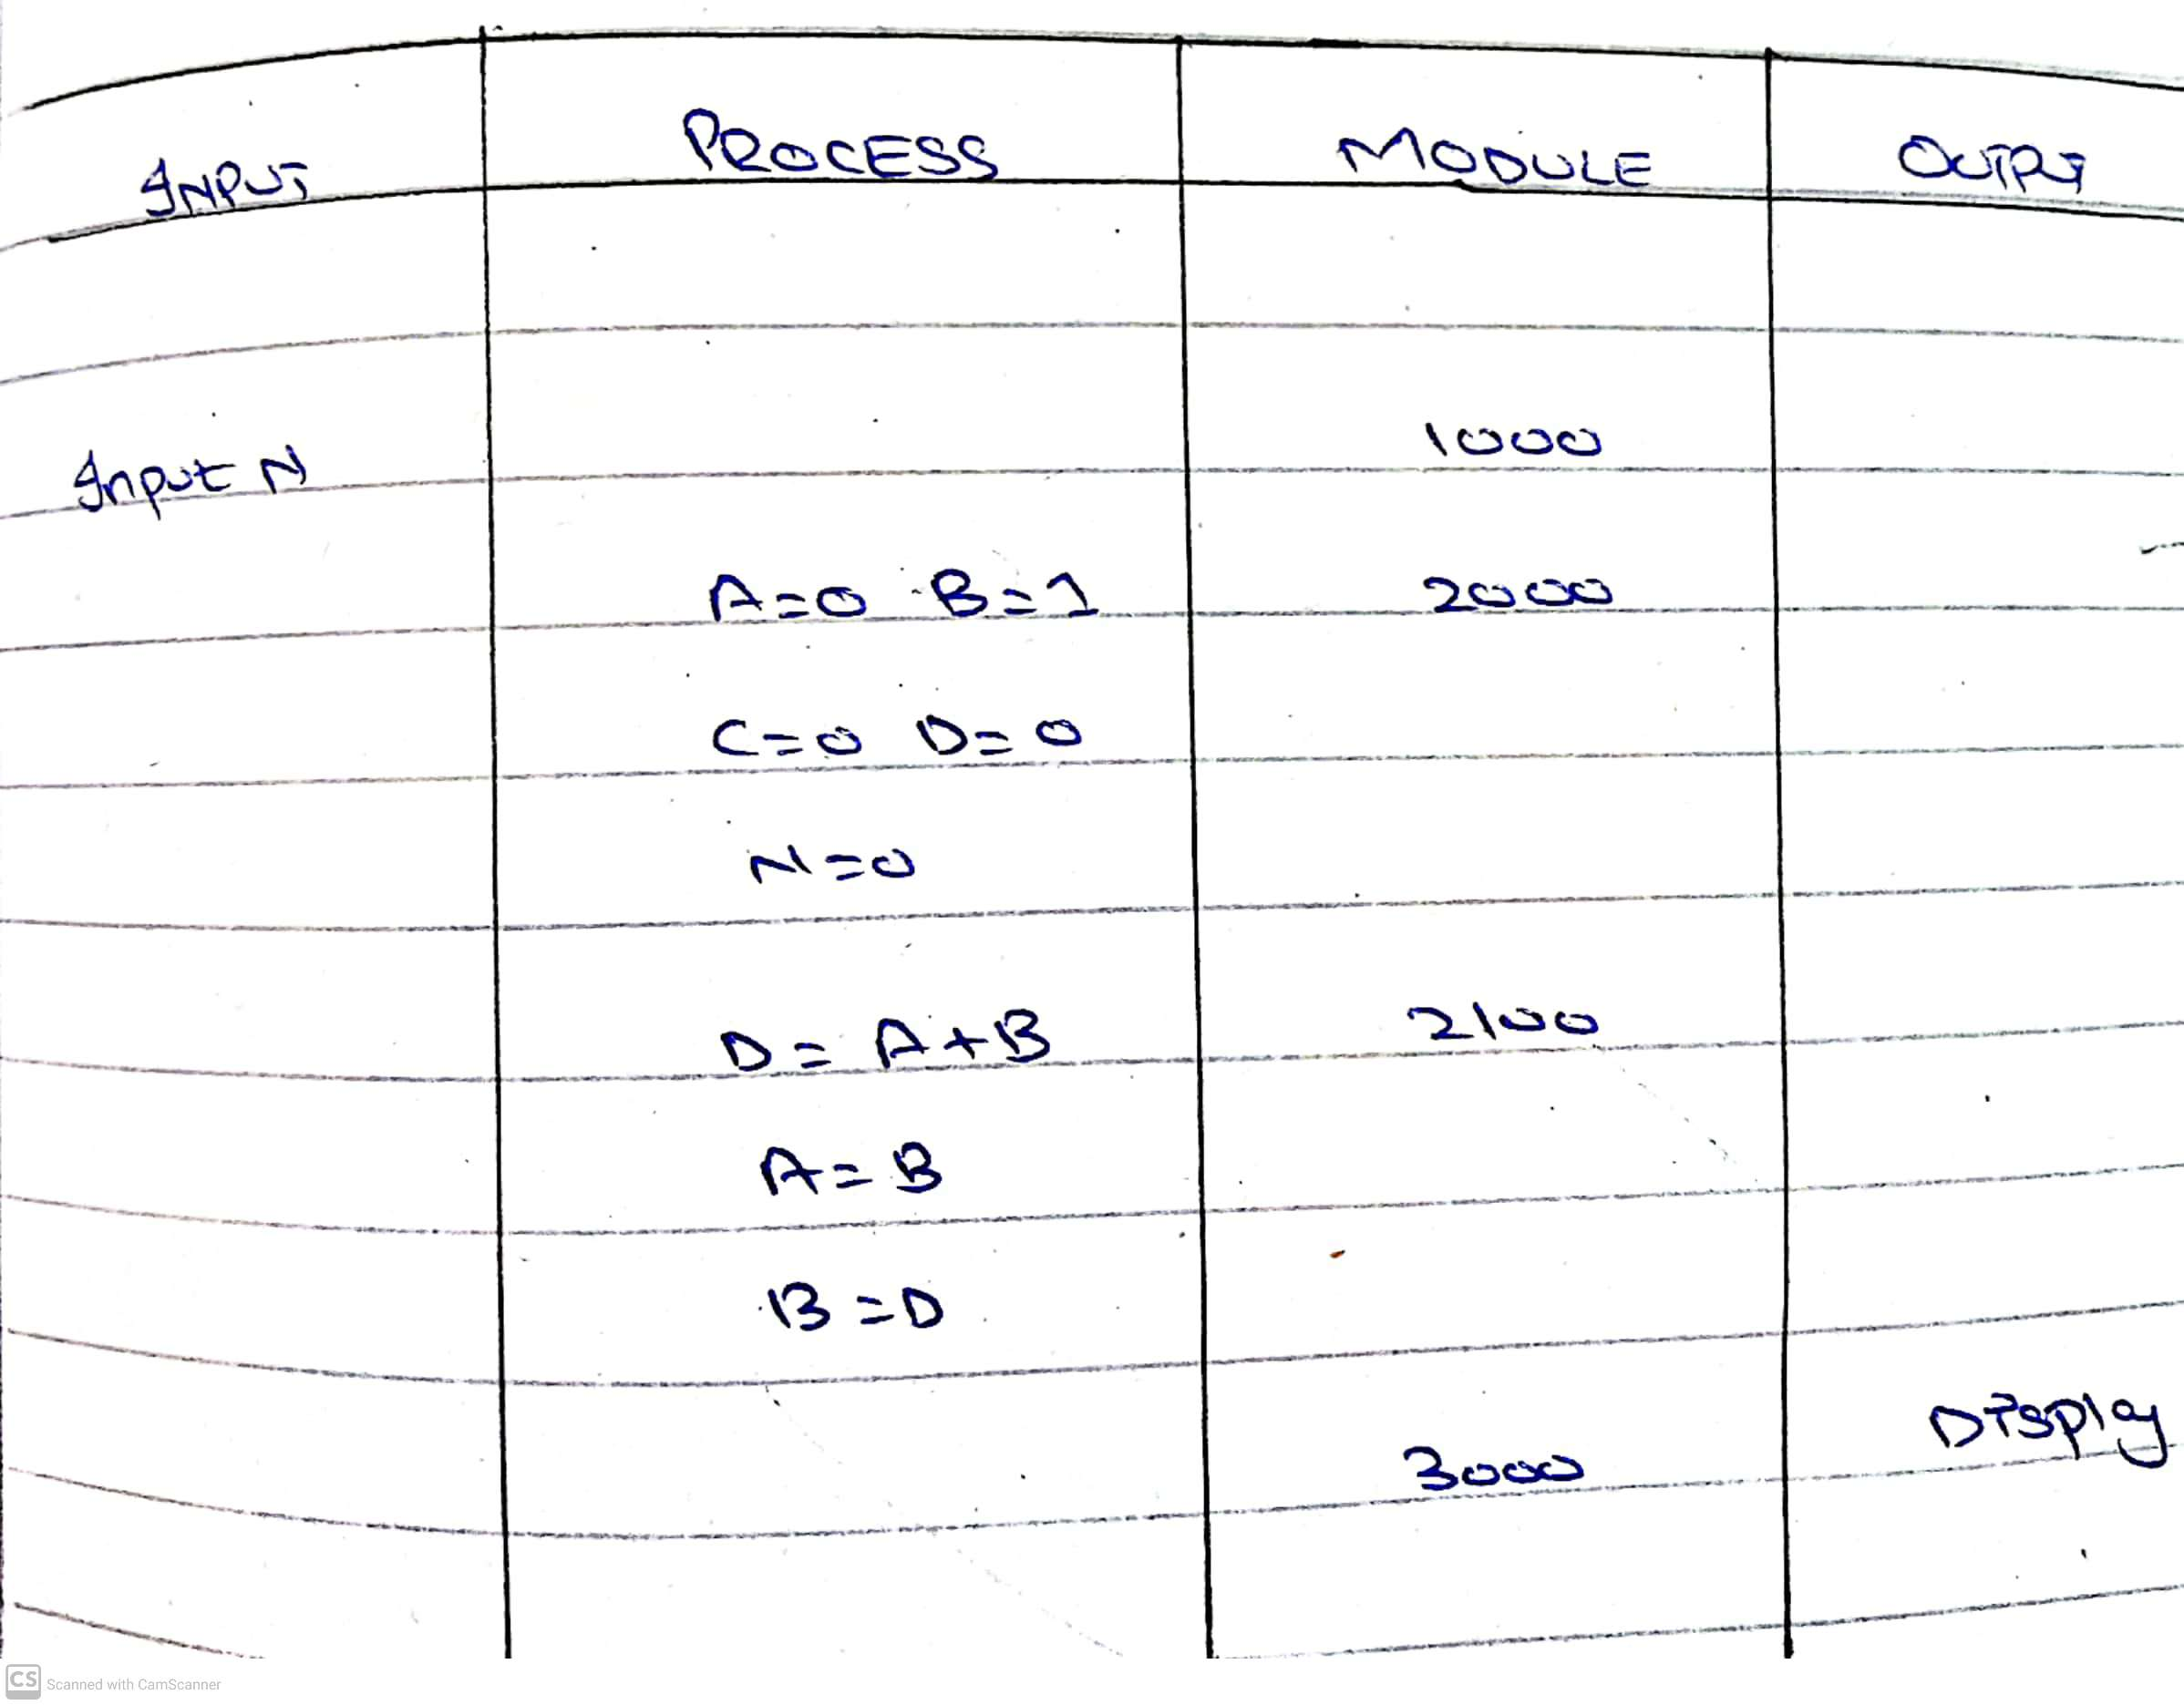 INPUT PROCESS MODULE OUTPUT
Input N 1000
A=0 B=1 2000
C=0 D=0
N=0
D=A+B 2100
A=B
B=D
3000 Display
CS Scanned with CamScanner